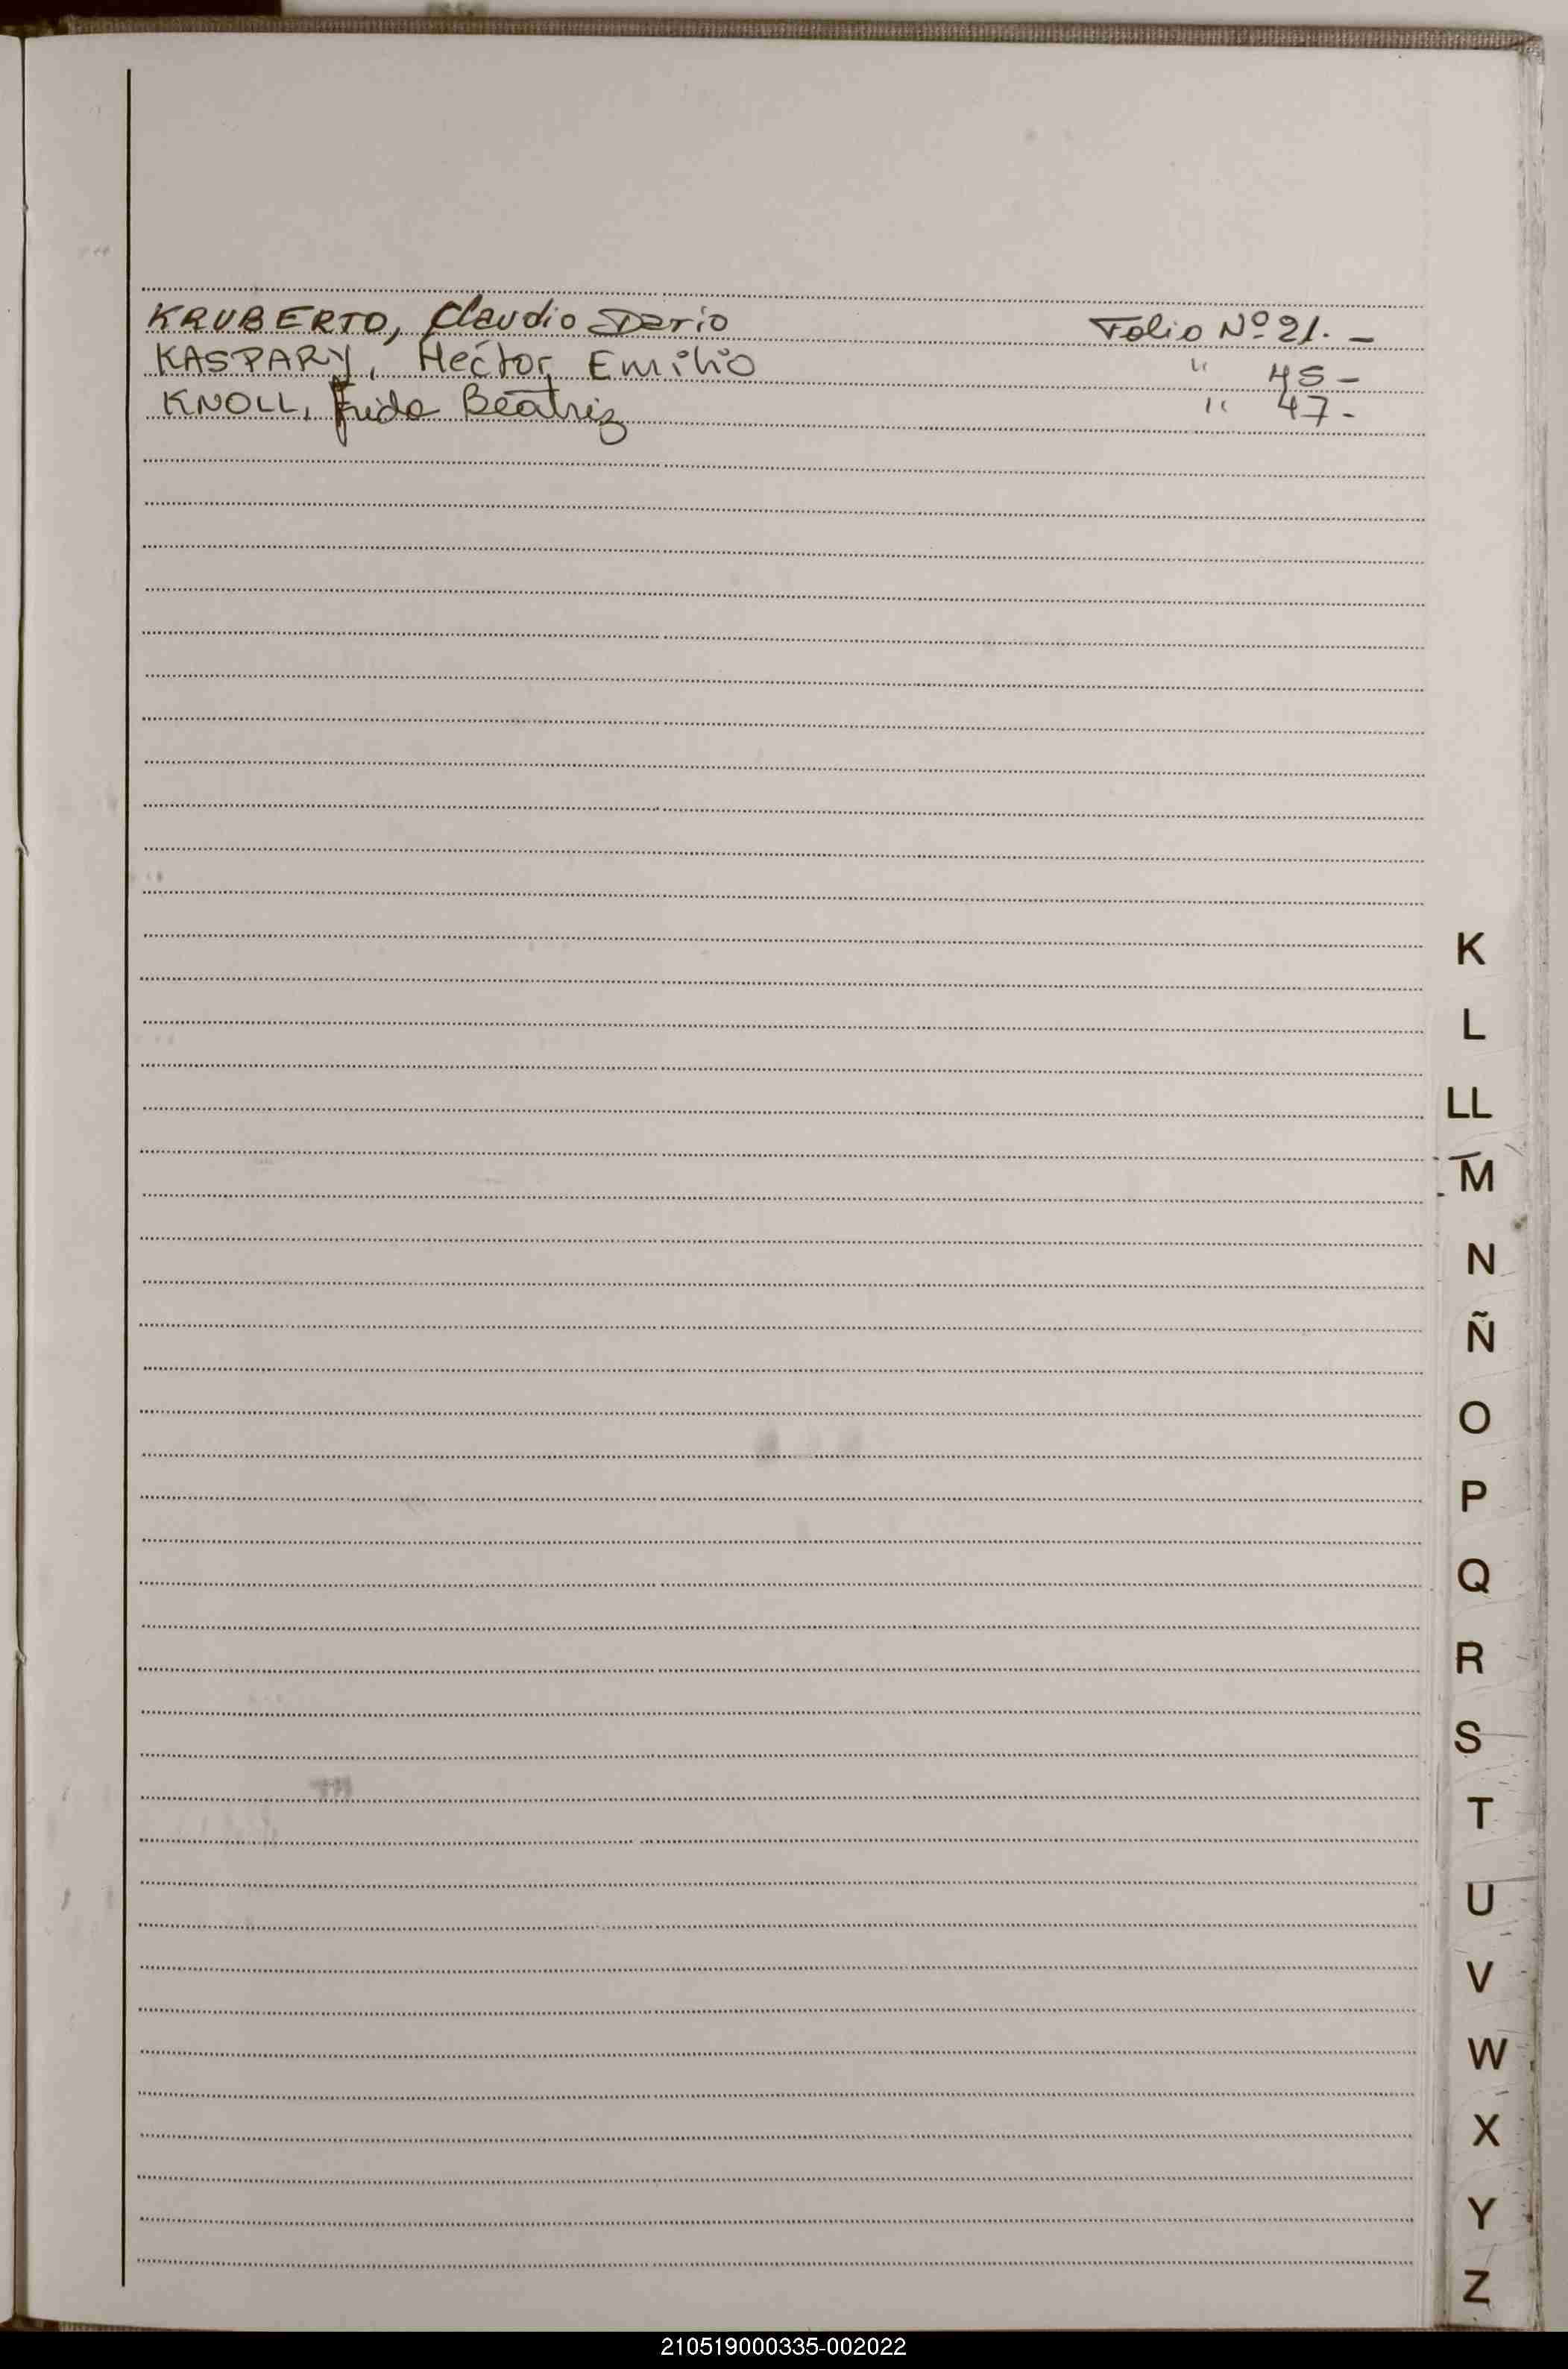 KRUBERTO, Claudio Dario Folio Nº 21. -
KASPARY, Hector Emilio " 45 -
KNOLL, Frida Beatriz " 47 -
K
L
LL
M
N
Ñ
O
P
Q
R
S
T
U
V
W
X
Y
Z
210519000335-002022